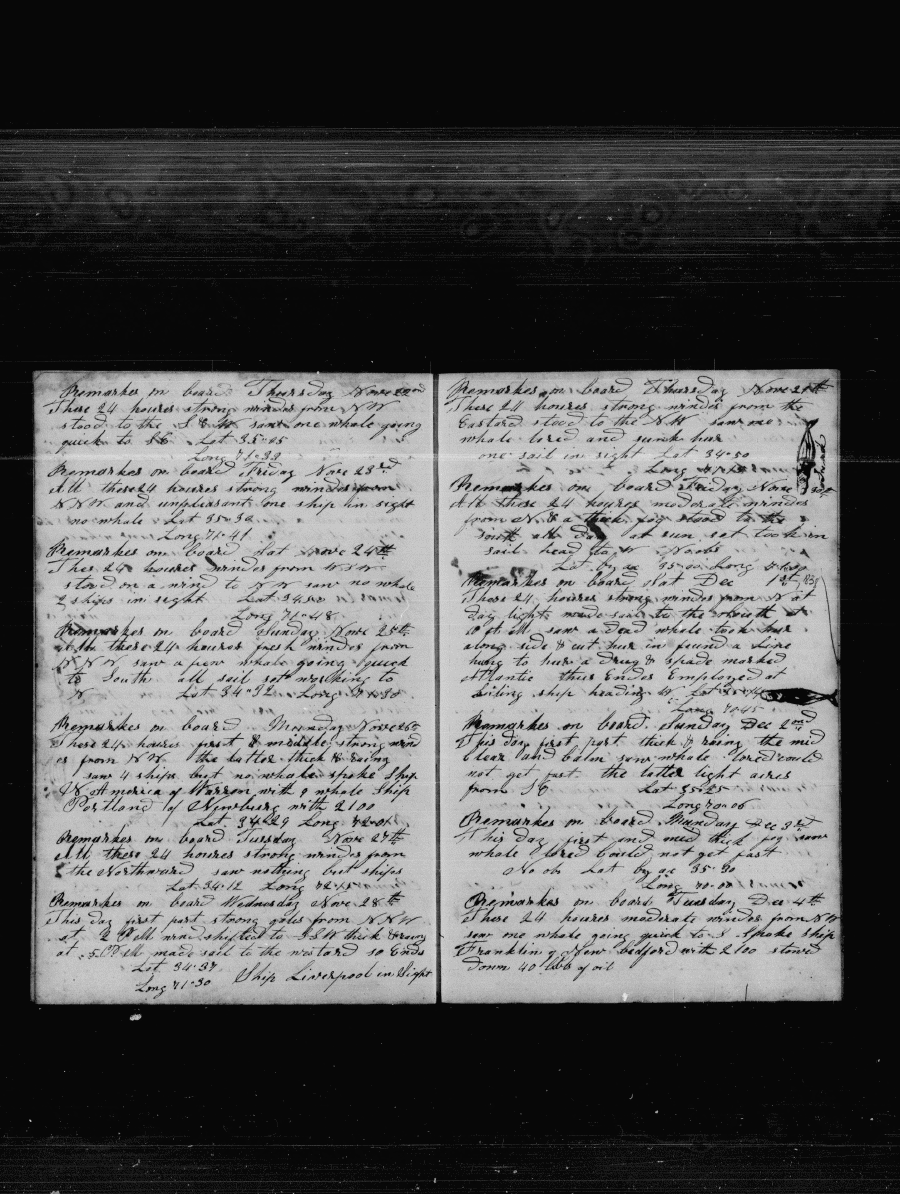 Remarkes on board Thursday Nove 22nd
These 24 houres strong windes from NW
stood to the S & W saw one whale going
quick to SE Lat 35-05
Long 71-39
Remarkes on board Friday Nove 23rd
All these 24 houres strong windes from
NNW and unpleasant one ship in sight
no whale Lat 35-32
Long 71-41
Remarkes on board Sat Nove 24th
Thes 24 houres windes from WSW
stood on a wind to NW saw no whale
2 ships in sight Lat 34-50
Long 71-48
Remarkes on board Sunday Nove 25th
All these 24 houres fresh windes from
NNW saw a few whale going quick
to South all sail set working to
N Lat 34-32 Long 71-30
Remarkes on board Munday Nove 26
These 24 houres first & middle strong wind
es from NW the latter thick & raing
saw 4 ships but no whale spoke Ship
N. America of Warren with 9 whale Ship
Portland of Newburg with 2100
Lat 34-29 Long 72-01
Remarkes on board Tuesday Nove 27th
All these 24 houres strong windes from
the Northward saw nothing but ships
Lat 34-12 Long 72-15
Remarkes on board Wednesday Nove 28th
This day first part strong gales from NNW
at 2 P M wind shifted to SSW thick & raing
at 5 P M made sail to the westard so Ends
Lat 34-37
Long 71-30 Ship Liverpool in Sight
Remarkes on board Thursday Nove 29th
These 24 houres strong windes from the
Eastard stood to the NW saw one
whale lored and sunk hur
one sail in sight Lat 34-50
Long
Remarkes on board Friday Nove 30th
All these 24 houres moderate windes
from N & a thick fog stood to the
South all day at sun set took in
sail head to W No obs
Lat by ac 35-00 Long
Remarkes on board Sat Dec 1st
These 24 houres strong windes from N at
day light made sail to the South at
10 A M saw a dead whale took hur
along side & cut hur in found a Line
hung to hur a drug & spade marked
Atlantic thus Endes Employed at
Boiling ship heading W Lat 35-14
Long 70-45
Remarkes on board Sunday Dec 2nd
This day first part thick & raing the mid
clear and calm saw whale lored could
not get fast the latter light aires
from SE Lat 35-25
Long 70-06
Remarkes on board Munday Dec 3rd
This day first and mid thick fog saw
whale lored Could not get fast
No ob Lat by ac 35-30
Long 70-00
Remarkes on board Tuesday Dec 4th
These 24 houres moderate windes from NW
saw one whale going quick to S Spoke ship
Franklin of New bedford with 2100 stowed
down 40 bbls of oil